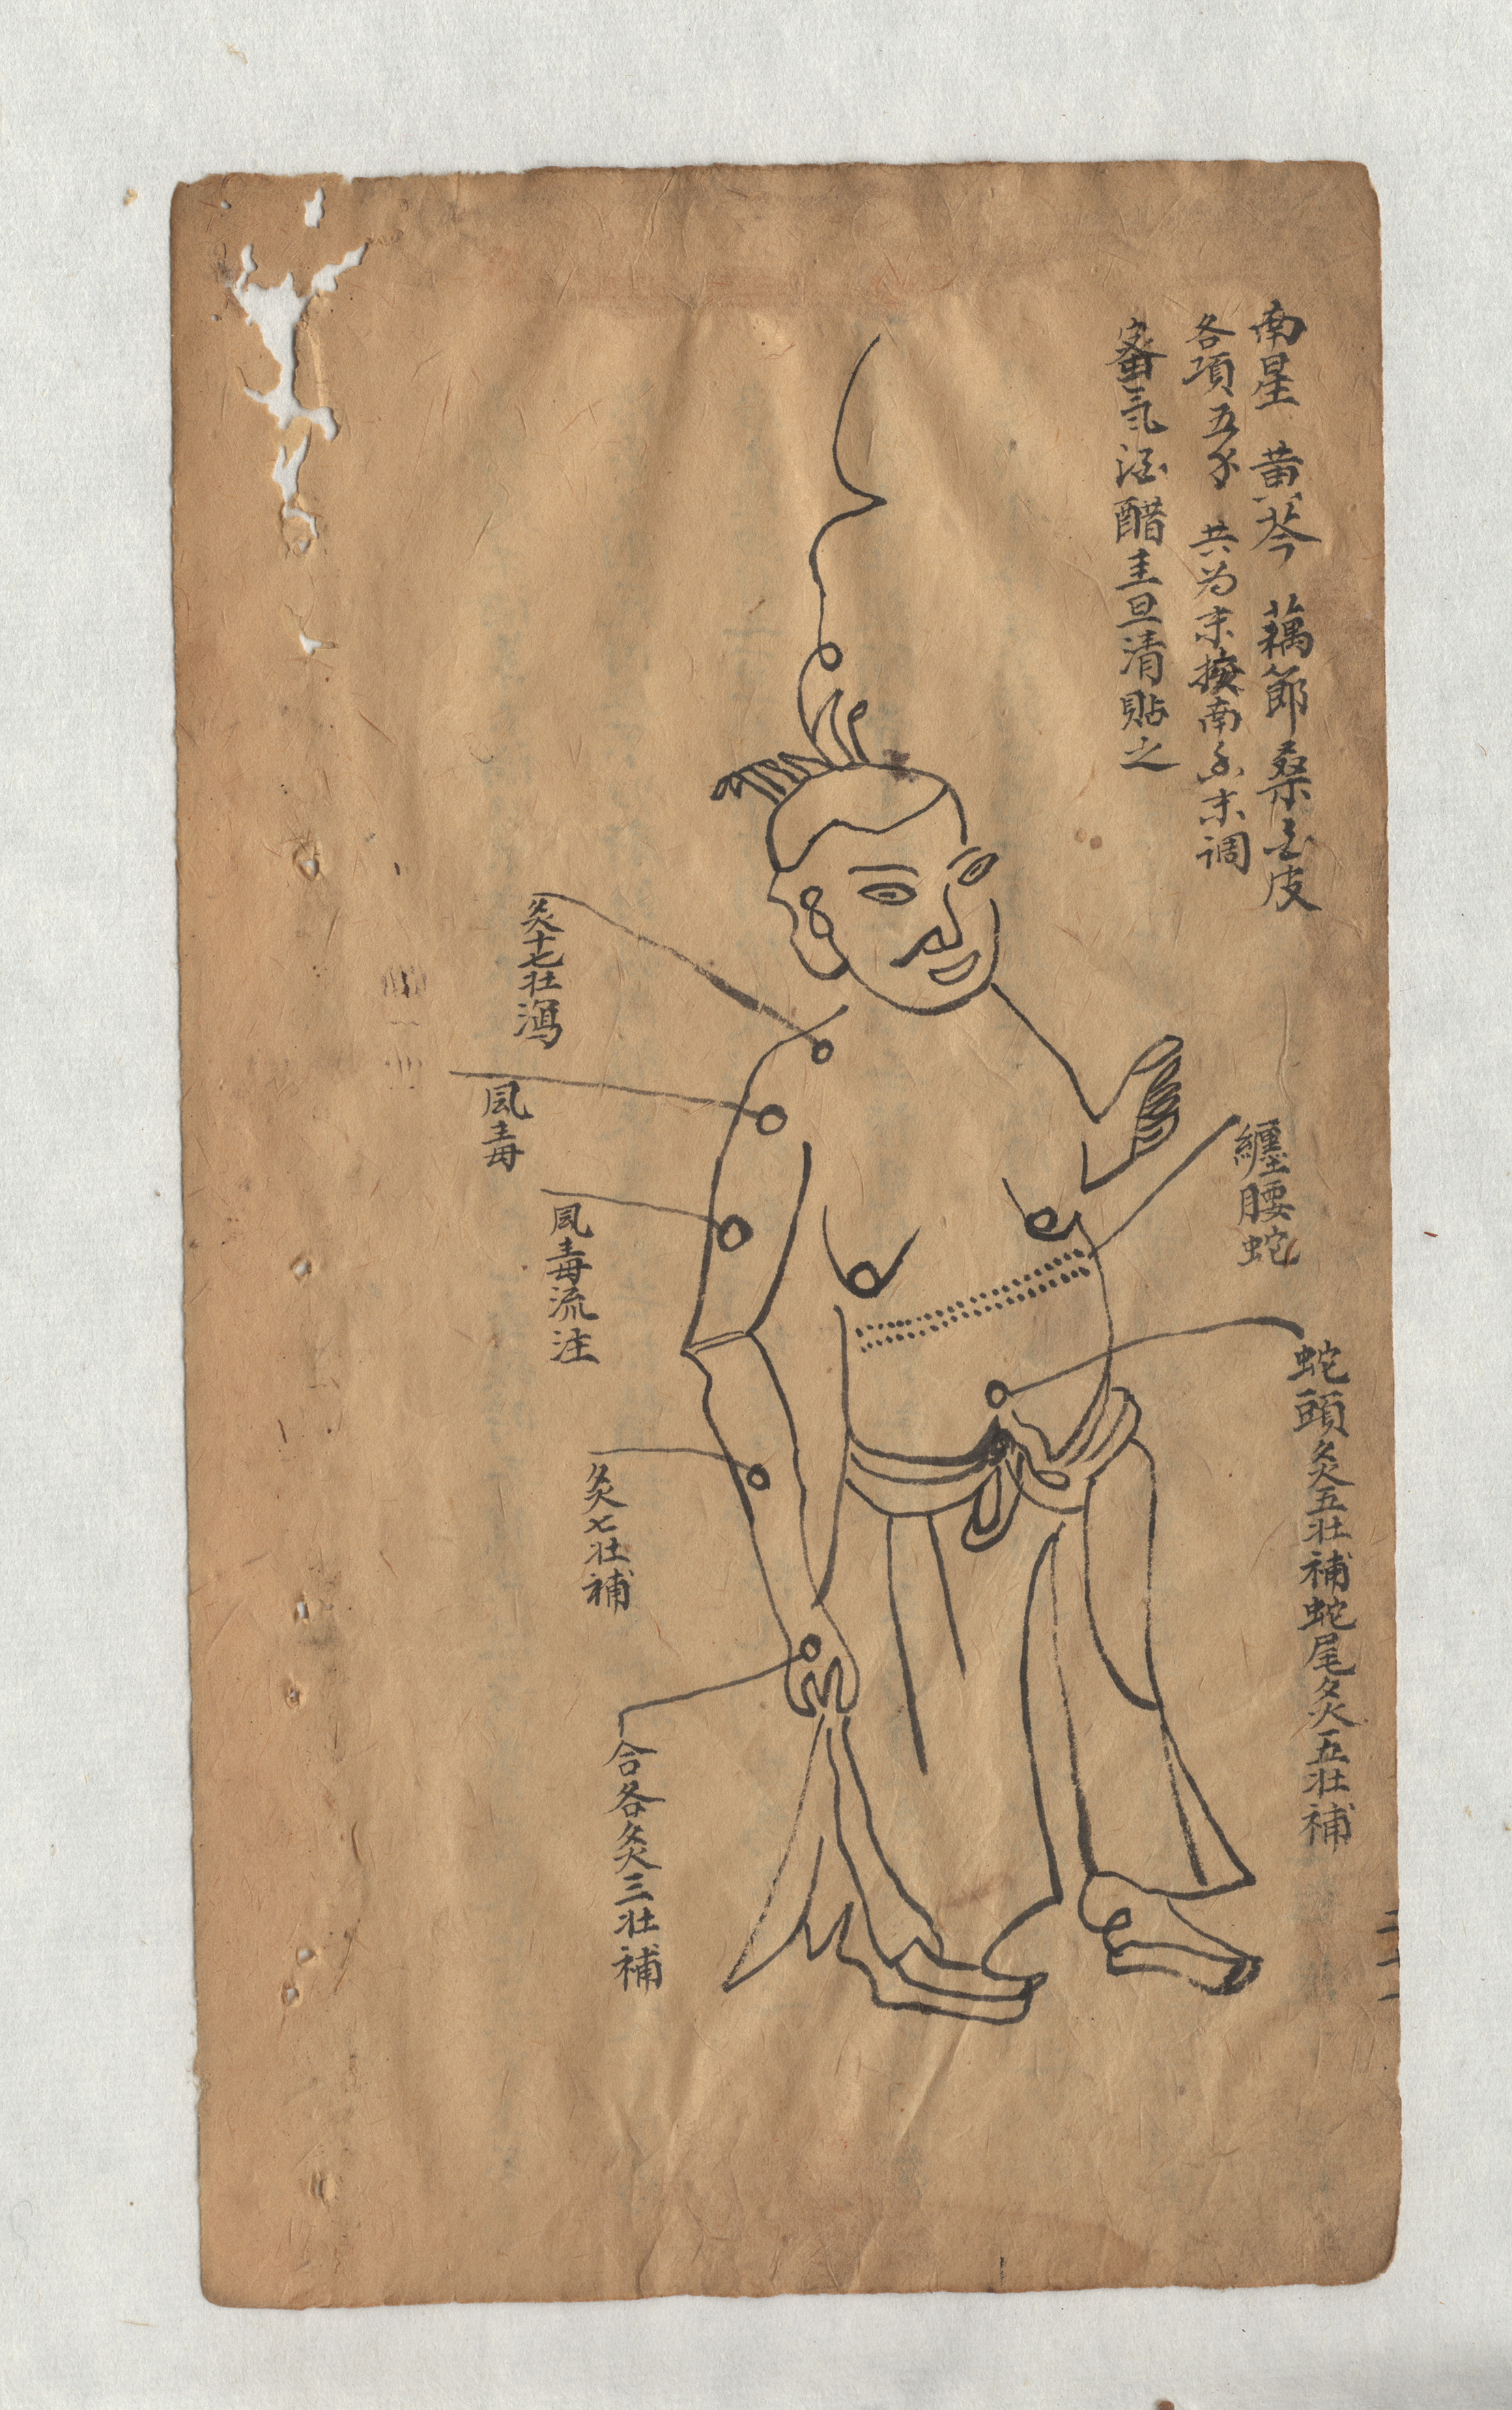 南星 黄芩 藕節 桑白皮
各項五分 共为末 南 末调
蜜 酒醋 旦清貼之
纏腰蛇
蛇頭灸五壮補蛇尾灸五壮補
灸十七壮瀉
風毒
風毒流注
灸七壮補
合各灸三壮補